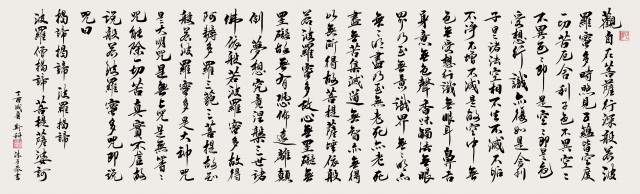 觀自在菩薩行深般若波
羅蜜多時照見五蘊皆空度
一切苦厄舍利子色不異空空
不異色色即是空空即是色
受想行識亦復如是舍利
子是諸法空相不生不滅不垢
不淨不增不減是故空中無
色無受想行識無眼耳鼻舌
身意無色聲香味觸法無眼
界乃至無意識界無無明亦
無無明盡乃至無老死亦無老死
盡無苦集滅道無智亦無得
以無所得故菩提薩埵依般
若波羅蜜多故心無罣礙無
罣礙故無有恐怖遠離顛
倒夢想究竟涅槃三世諸
佛依般若波羅蜜多故得
阿耨多羅三藐三菩提故知
般若波羅蜜多是大神咒
是大明咒是無上咒是無等等
咒能除一切苦真實不虛故
說般若波羅蜜多咒即說
咒曰
揭諦揭諦 波羅揭諦
波羅僧揭諦 菩提薩婆訶
丁酉